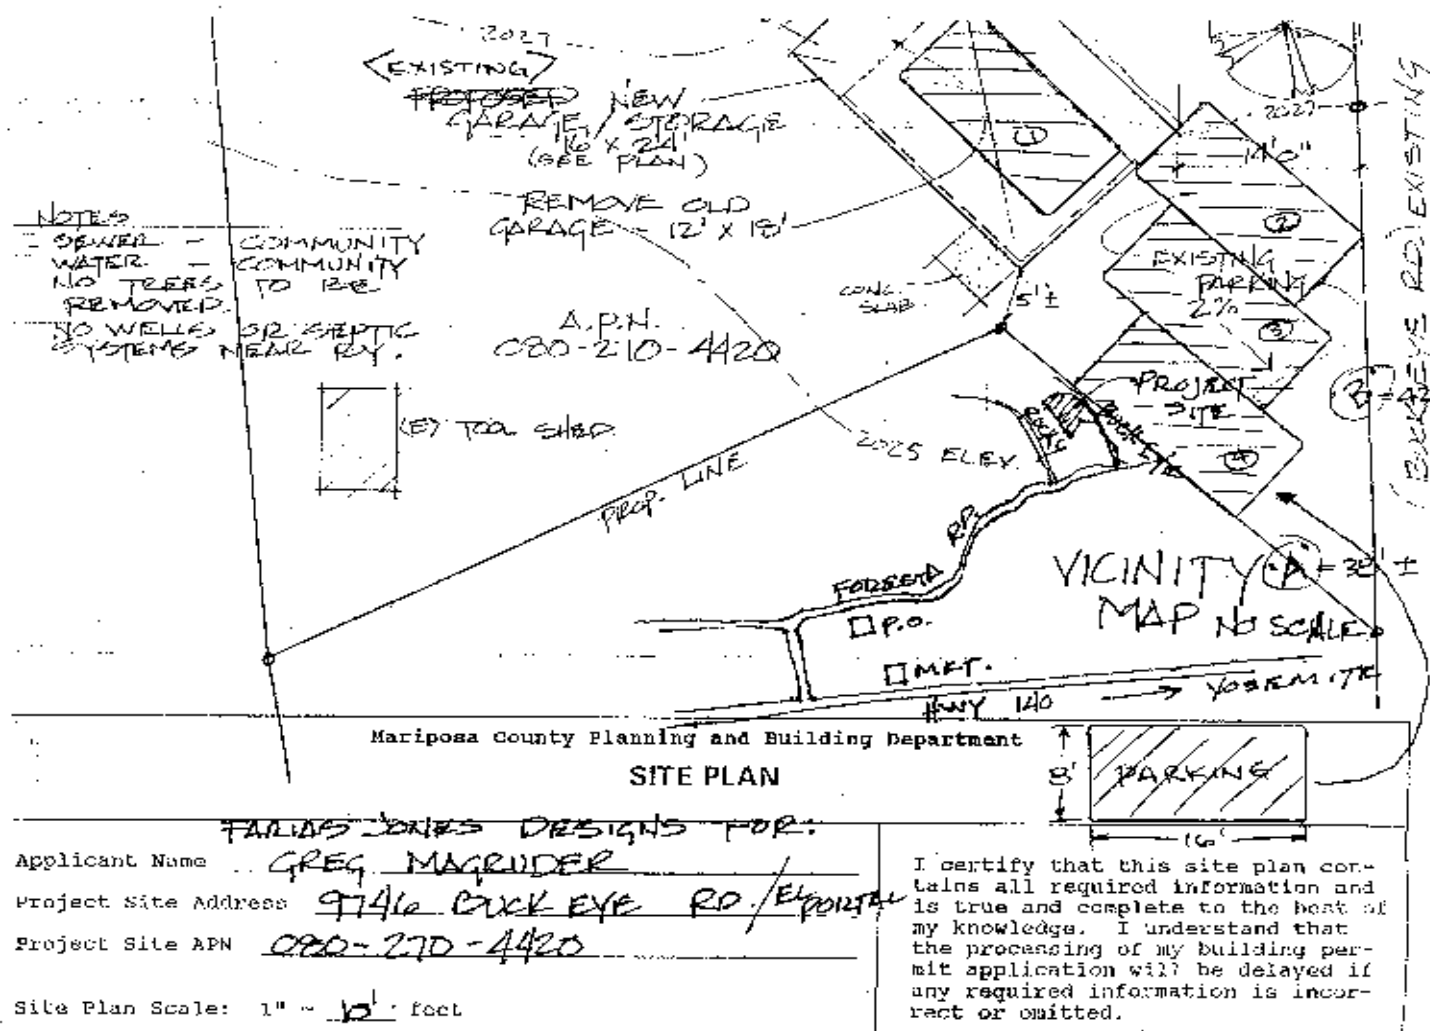 2027
<EXISTING>
PROPOSED NEW
GARAGE / STORAGE
16' X 24'
(SEE PLAN)
REMOVE OLD
GARAGE - 12' X 18'
NOTES
- SEWER - COMMUNITY
WATER - COMMUNITY
NO TREES TO BE
REMOVED.
NO WELLS OR SEPTIC
SYSTEMS NEAR BY.
A.P.N.
080-210-4420
(E) TOOL SHED
PROP. LINE
CONC.
SLAB
5'±
2025 ELEV.
1
2027
14'0"
2
EXISTING
PARKING
2%
3
PROJECT
SITE
4
BUCKEYE
BUCKEYE RD EXISTING
"B" = 42
"A" = 38' ±
VICINITY
MAP NO SCALE
FORESTA RD.
P.O.
MKT.
HWY 140 → YOSEMITE
Mariposa County Planning and Building Department
SITE PLAN
8'
PARKING
16'
FARIAS JONES DESIGNS FOR:
Applicant Name GREG MAGRUDER
Project Site Address 9746 BUCKEYE RD. / EL PORTAL
Project Site APN 080-270-4420
Site Plan Scale: 1" = 10' feet
I certify that this site plan con-
tains all required information and
is true and complete to the best of
my knowledge. I understand that
the processing of my building per-
mit application will be delayed if
any required information is incor-
rect or omitted.